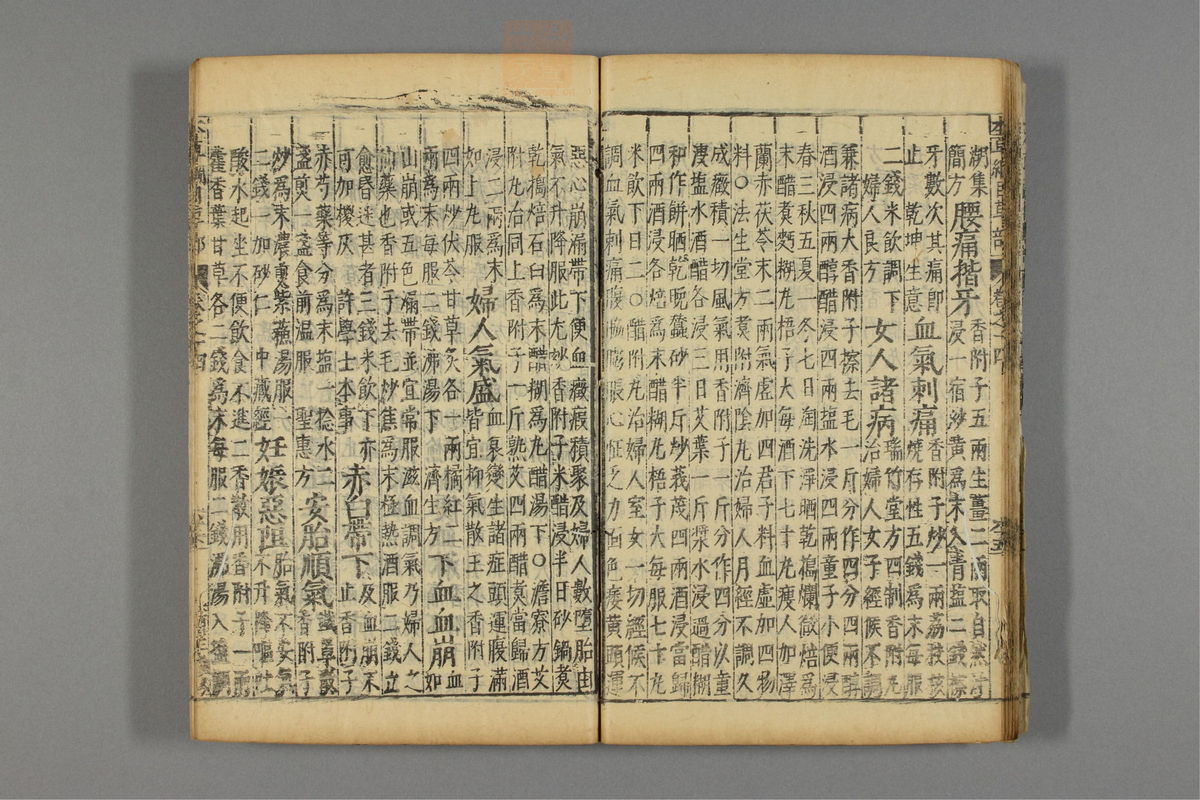 湖集簡方腰痛揩牙香附子五兩生薑二兩取自然汁
浸一宿炒黃為末入青塩二錢擦
牙數次其痛即止乾坤生意血氣刺痛香附子炒一兩荔枝核
燒存性五錢為末每服
二錢米飲調下婦人良方女人諸病瑞竹堂方四制香附丸
治婦人女子經候不調
兼諸病大香附子擦去毛一斤分作四分四兩醇
酒浸四兩醇醋浸四兩塩水浸四兩童子小便浸
春三秋五夏一冬七日淘洗淨晒乾搗爛微焙為
末醋煮麪糊丸梧子大每酒下七十丸瘦人加澤
蘭赤茯苓末二兩氣虛加四君子料血虛加四物
料○法生堂方煮附濟陰丸治婦人月經不調久
成癥積一切風氣用香附子一斤分作四分以童
溲塩水酒醋各浸三日艾葉一斤漿水浸過醋糊
和作餅晒乾晚蠶砂半斤炒莪茂四兩酒浸當歸
四兩酒浸各焙為末醋糊丸梧子大每服七十丸
米飲下日二○醋附丸治婦人室女一切經候不
調血氣刺痛腹脇膨脹心怔乏力面色痿黃頭運
惡心崩漏帶下便血癥瘕積聚及婦人數墮胎由
氣不升降服此尤妙香附子米醋浸半日砂鍋煮
乾搗焙石臼為末醋糊為丸醋湯下○澹寮方艾
附丸治同上香附子一斤熟艾四兩醋煮當歸酒
浸二兩為末如上丸服婦人氣盛血衰變生諸症頭運腹滿
皆宜抑氣散主之香附子
四兩炒茯苓甘草炙各一兩橘紅二
兩為末每服二錢沸湯下濟生方下血血崩血
如
山崩或五色漏帶並宜常服滋血調氣乃婦人之
仙藥也香附子去毛炒焦為末極熱酒服二錢立
愈昏迷甚者三錢米飲下亦
可加椶灰許學士本事赤白帶下及血崩不
止香附子
赤芍藥等分為末塩一捻水二
盞煎一盞食前溫服聖惠方安胎順氣
香附子
炒為末濃煎紫蘇湯服
二錢一加砂仁中藏經妊娠惡阻胎氣不安氣
不升降嘔吐
酸水起坐不便飲食不進二香散用香附子一兩
藿香葉甘草各二錢為末每服二錢沸湯入塩調